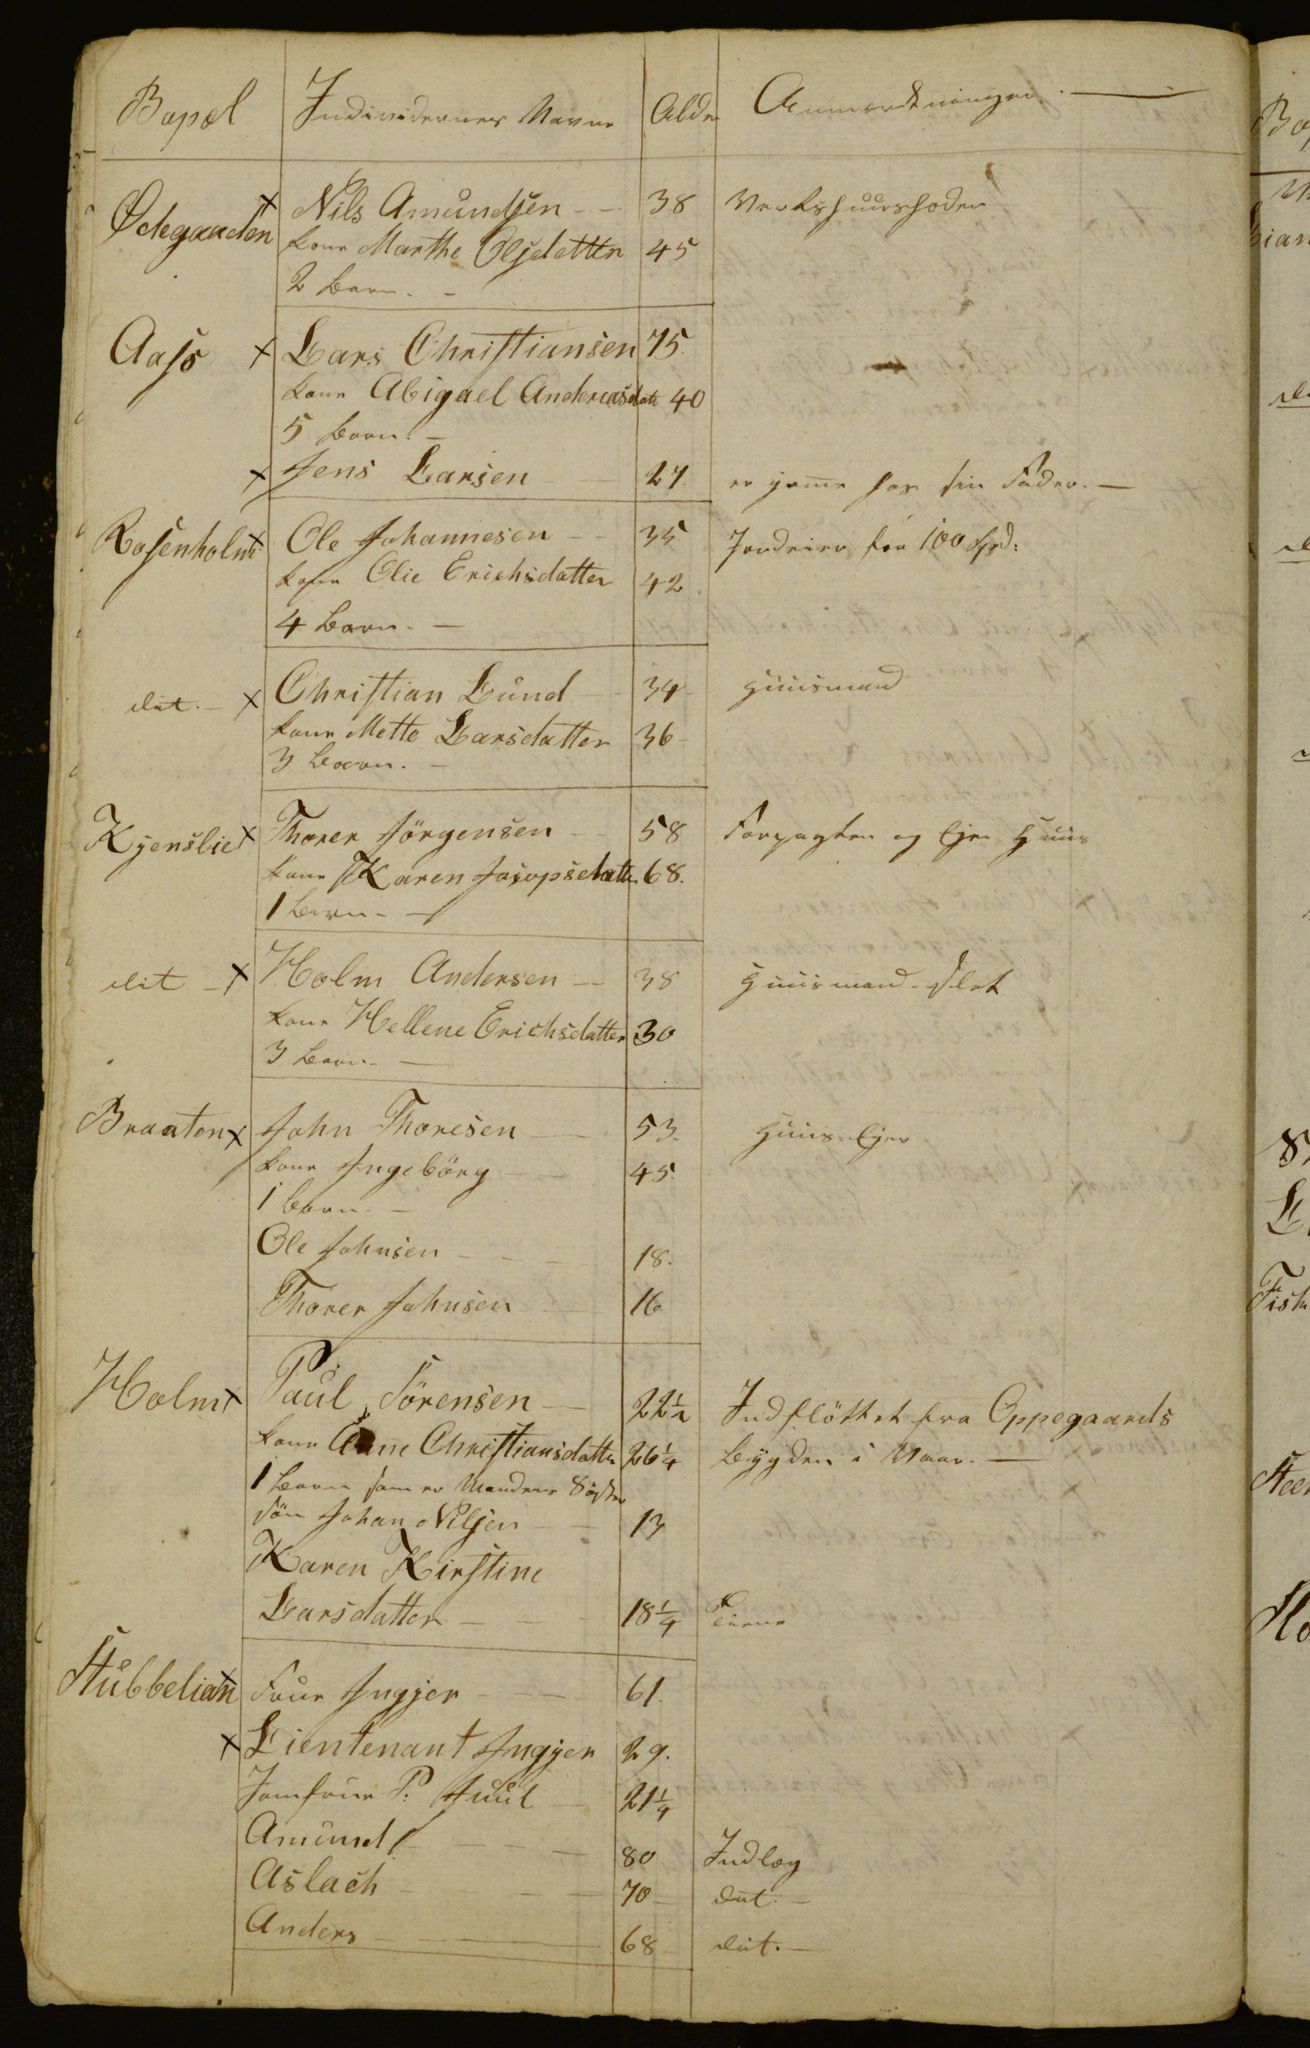 Bopæl Individernes Navne Alder Anmærkninger.
Ødegaarden x Nils Amundsen 38
kone Marthe Olsdatter 45
2 Børn.
Aasø x Lars Christiansen 75.
kone Abigael Andreasdatt 40
5 Børn.
x Jens Larsen 27. er hjemme hos sin Fader.
Rosenholm x Ole Johannesen 35 Jordeier for 100 Spd:
kone Olie Erichsdatter 42
4 Børn.
dit. x Christian Lund 34 Huusmand
kone Mette Larsdatter 36
3 Børn.
Kjenslie x Thorer Jörgensen 58 Forpagter og Ejer Huus
kone Karen Jacopsdatter 68.
1 Barn
dit x Holm Andersen 38 Huusmand
kone Hellene Erichsdatter 30
3 Børn
Braaten x John Thoresen 53. Huus-Ejer
kone Ingebörg 45.
1 Barn
Ole Johnsen 18.
Thorer Johnsen 16
Holm x Paul Sörensen 22½ Indflöttet fra Oppegaards
kone Anne Christiansdatter 26¼ Bygden i Vaar.
1 Barn som er Mandens Söster
Sön Johan Nilsen 13
Karen Kirstine
Larsdatter 18¼ Tiener
Stubbelian x Frue Ingjer 61.
x Lieutenant Ingjer 29.
Jomfrue P. Juul 21¼
Amund 80 Indlæg
Aslach 70 dit.
Anders 68 dit.